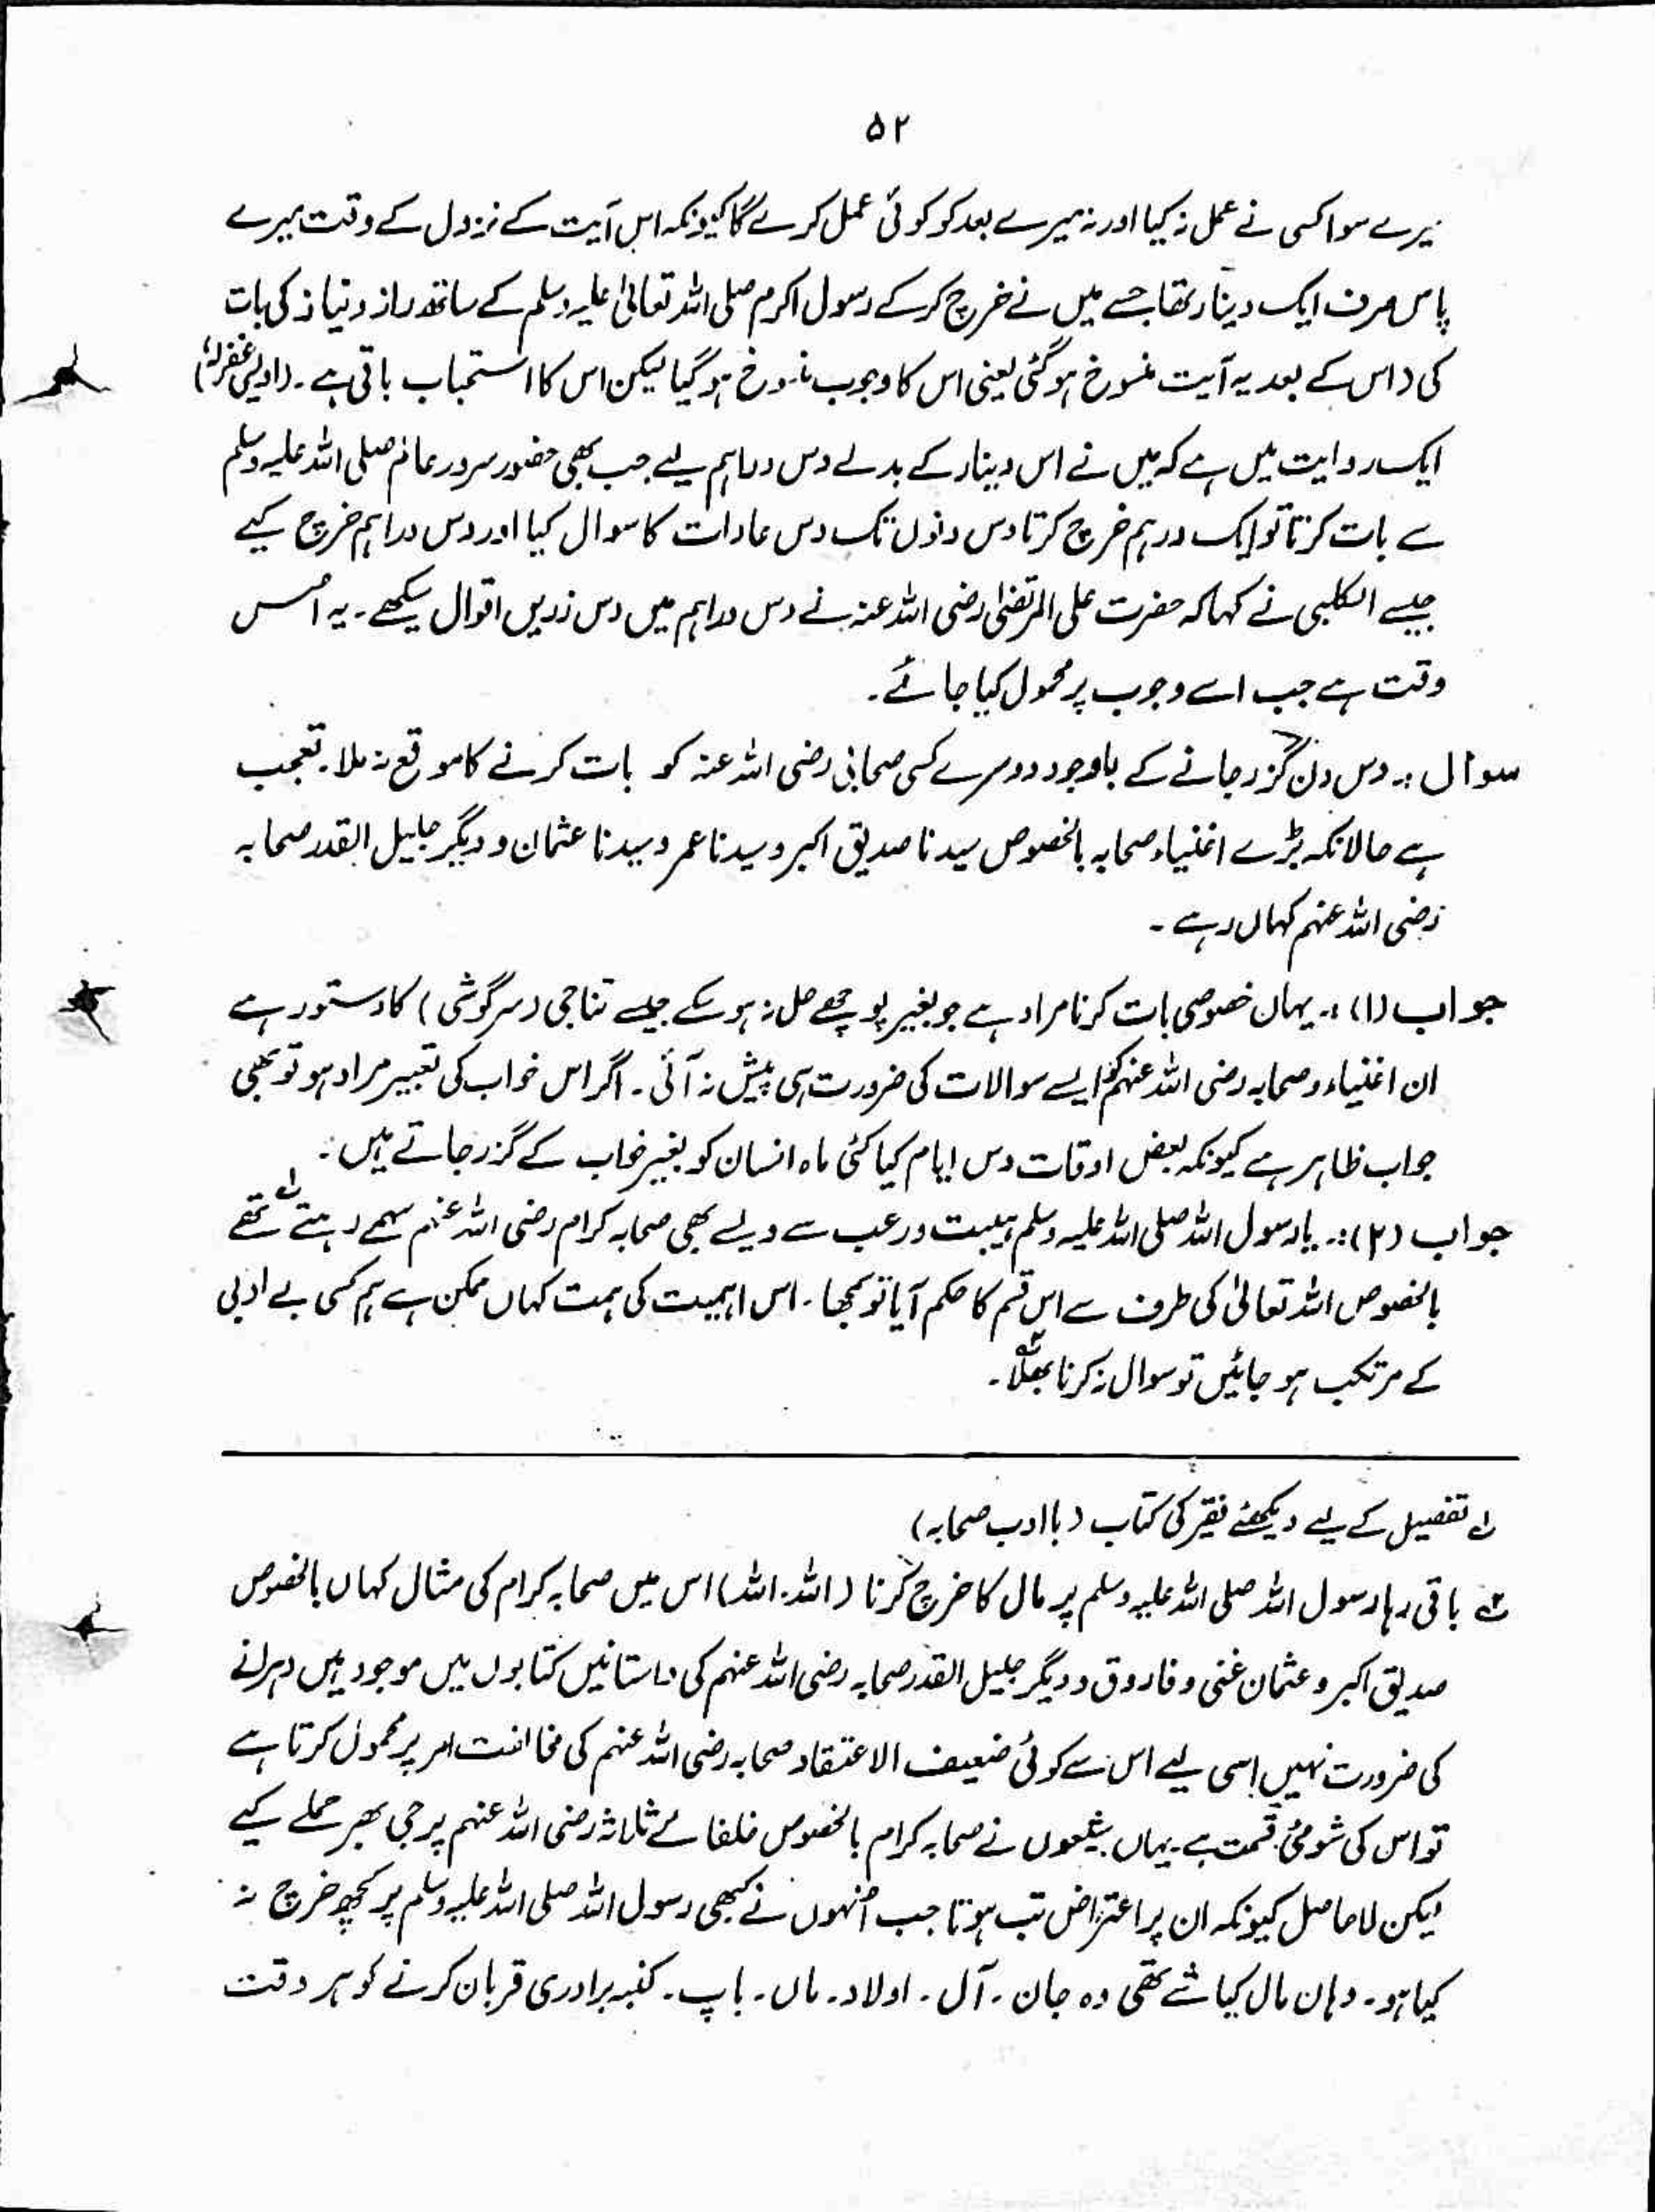 ۵۲
میرے سوا کسی نے عمل نہ کیا اور نہ میرے بعد کو کوئی عمل کرے گا کیونکہ اس آیت کے نزول کے وقت میرے
پاس صرف ایک دینار تھا جسے میں نے خرچ کرکے رسول اکرم صلی اللہ تعالیٰ علیہ وسلم کے ساتھ راز و نیاز کی بات
کی (اس کے بعد یہ آیت منسوخ ہوگئی یعنی اس کا وجوب منسوخ ہوگیا لیکن اس کا استحباب باقی ہے۔ (اویسی غفرلہٗ)
ایک روایت میں ہے کہ میں نے اس دینار کے بدلے دس دراہم لیے جب بھی حضور سرور عالم صلی اللہ علیہ وسلم
سے بات کرتا تو ایک درہم خرچ کرتا دس دنوں تک دس عادات کا سوال کیا اور دس دراہم خرچ کیے
جیسے الکلبی نے کہا کہ حضرت علی المرتضیٰ رضی اللہ عنہ نے دس دراہم میں دس زریں اقوال سیکھے۔ یہ اُس
وقت ہے جب اسے وجوب پر محمول کیا جائے۔
سوال :۔ دس دن گزر جانے کے باوجود دوسرے کسی صحابی رضی اللہ عنہ کو بات کرنے کا موقع نہ ملا۔ تعجب
ہے حالانکہ بڑے اغنیاء صحابہ بالخصوص سیدنا صدیق اکبر و سیدنا عمر و سیدنا عثمان و دیگر جلیل القدر صحابہ
رضی اللہ عنہم کہاں رہے ۔
جواب (۱) :۔ یہاں خصوصی بات کرنا مراد ہے جو بغیر پوچھے حل نہ ہو سکے جیسے تناجی (سرگوشی) کا دستور ہے
ان اغنیاء و صحابہ رضی اللہ عنہم کو ایسے سوالات کی ضرورت ہی پیش نہ آئی ۔ اگر اس خواب کی تعبیر مراد ہو تو بھی
جواب ظاہر ہے کیونکہ بعض اوقات دس ایام کیا کئی ماہ انسان کو بغیر خواب کے گزر جاتے ہیں ۔
جواب (۲) :۔ یا رسول اللہ صلی اللہ علیہ وسلم ہیبت و رعب سے ویسے بھی صحابہ کرام رضی اللہ عنہم سہمے رہتے تھے لہ
بالخصوص اللہ تعالیٰ کی طرف سے اس قسم کا حکم آیا تو سمجھا ۔ اس اہمیت کی ہمت کہاں ممکن ہے ہم کسی بے ادبی
کے مرتکب ہو جائیں تو سوال نہ کرنا بھلا ۲ہ ۔
لہ تفصیل کے لیے دیکھئے فقیر کی کتاب (با ادب صحابہ)
۲ہ باقی رہا رسول اللہ صلی اللہ علیہ وسلم پر مال کا خرچ کرنا (اللہ ۔ اللہ) اس میں صحابہ کرام کی مثال کہاں بالخصوص
صدیق اکبر و عثمان غنی و فاروق و دیگر جلیل القدر صحابہ رضی اللہ عنہم کی داستانیں کتابوں میں موجود ہیں دہرانے
کی ضرورت نہیں اسی لیے اس سے کوئی ضعیف الاعتقاد صحابہ رضی اللہ عنہم کی مخالفت امر پر محمول کرتا ہے
تو اس کی شومئ قسمت ہے یہاں شیعوں نے صحابہ کرام بالخصوص خلفائے ثلاثہ رضی اللہ عنہم پر جی بھر حملے کیے
لیکن لاحاصل کیونکہ ان پر اعتراض تب ہوتا جب اُنہوں نے کبھی رسول اللہ صلی اللہ علیہ وسلم پر کچھ خرچ نہ
کیا ہو ۔ وہاں مال کیا شے تھی وہ جان ۔ آل ۔ اولاد ۔ ماں ۔ باپ ۔ کنبہ برادری قربان کرنے کو ہر وقت